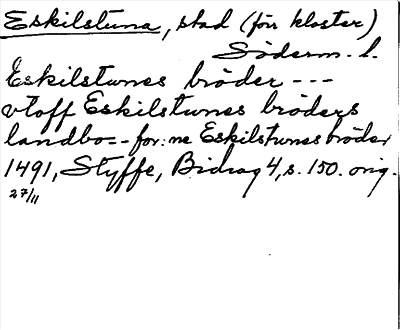 Eskilstuna, stad (förr kloster)
Söderm. l.
Eskilstunes brøder ---
vtoff Eskilstunes brøders
landbo=-for:ne Eskilstunes brøder
1491, Styffe, Bidrag 4, s. 150. orig.
27/11